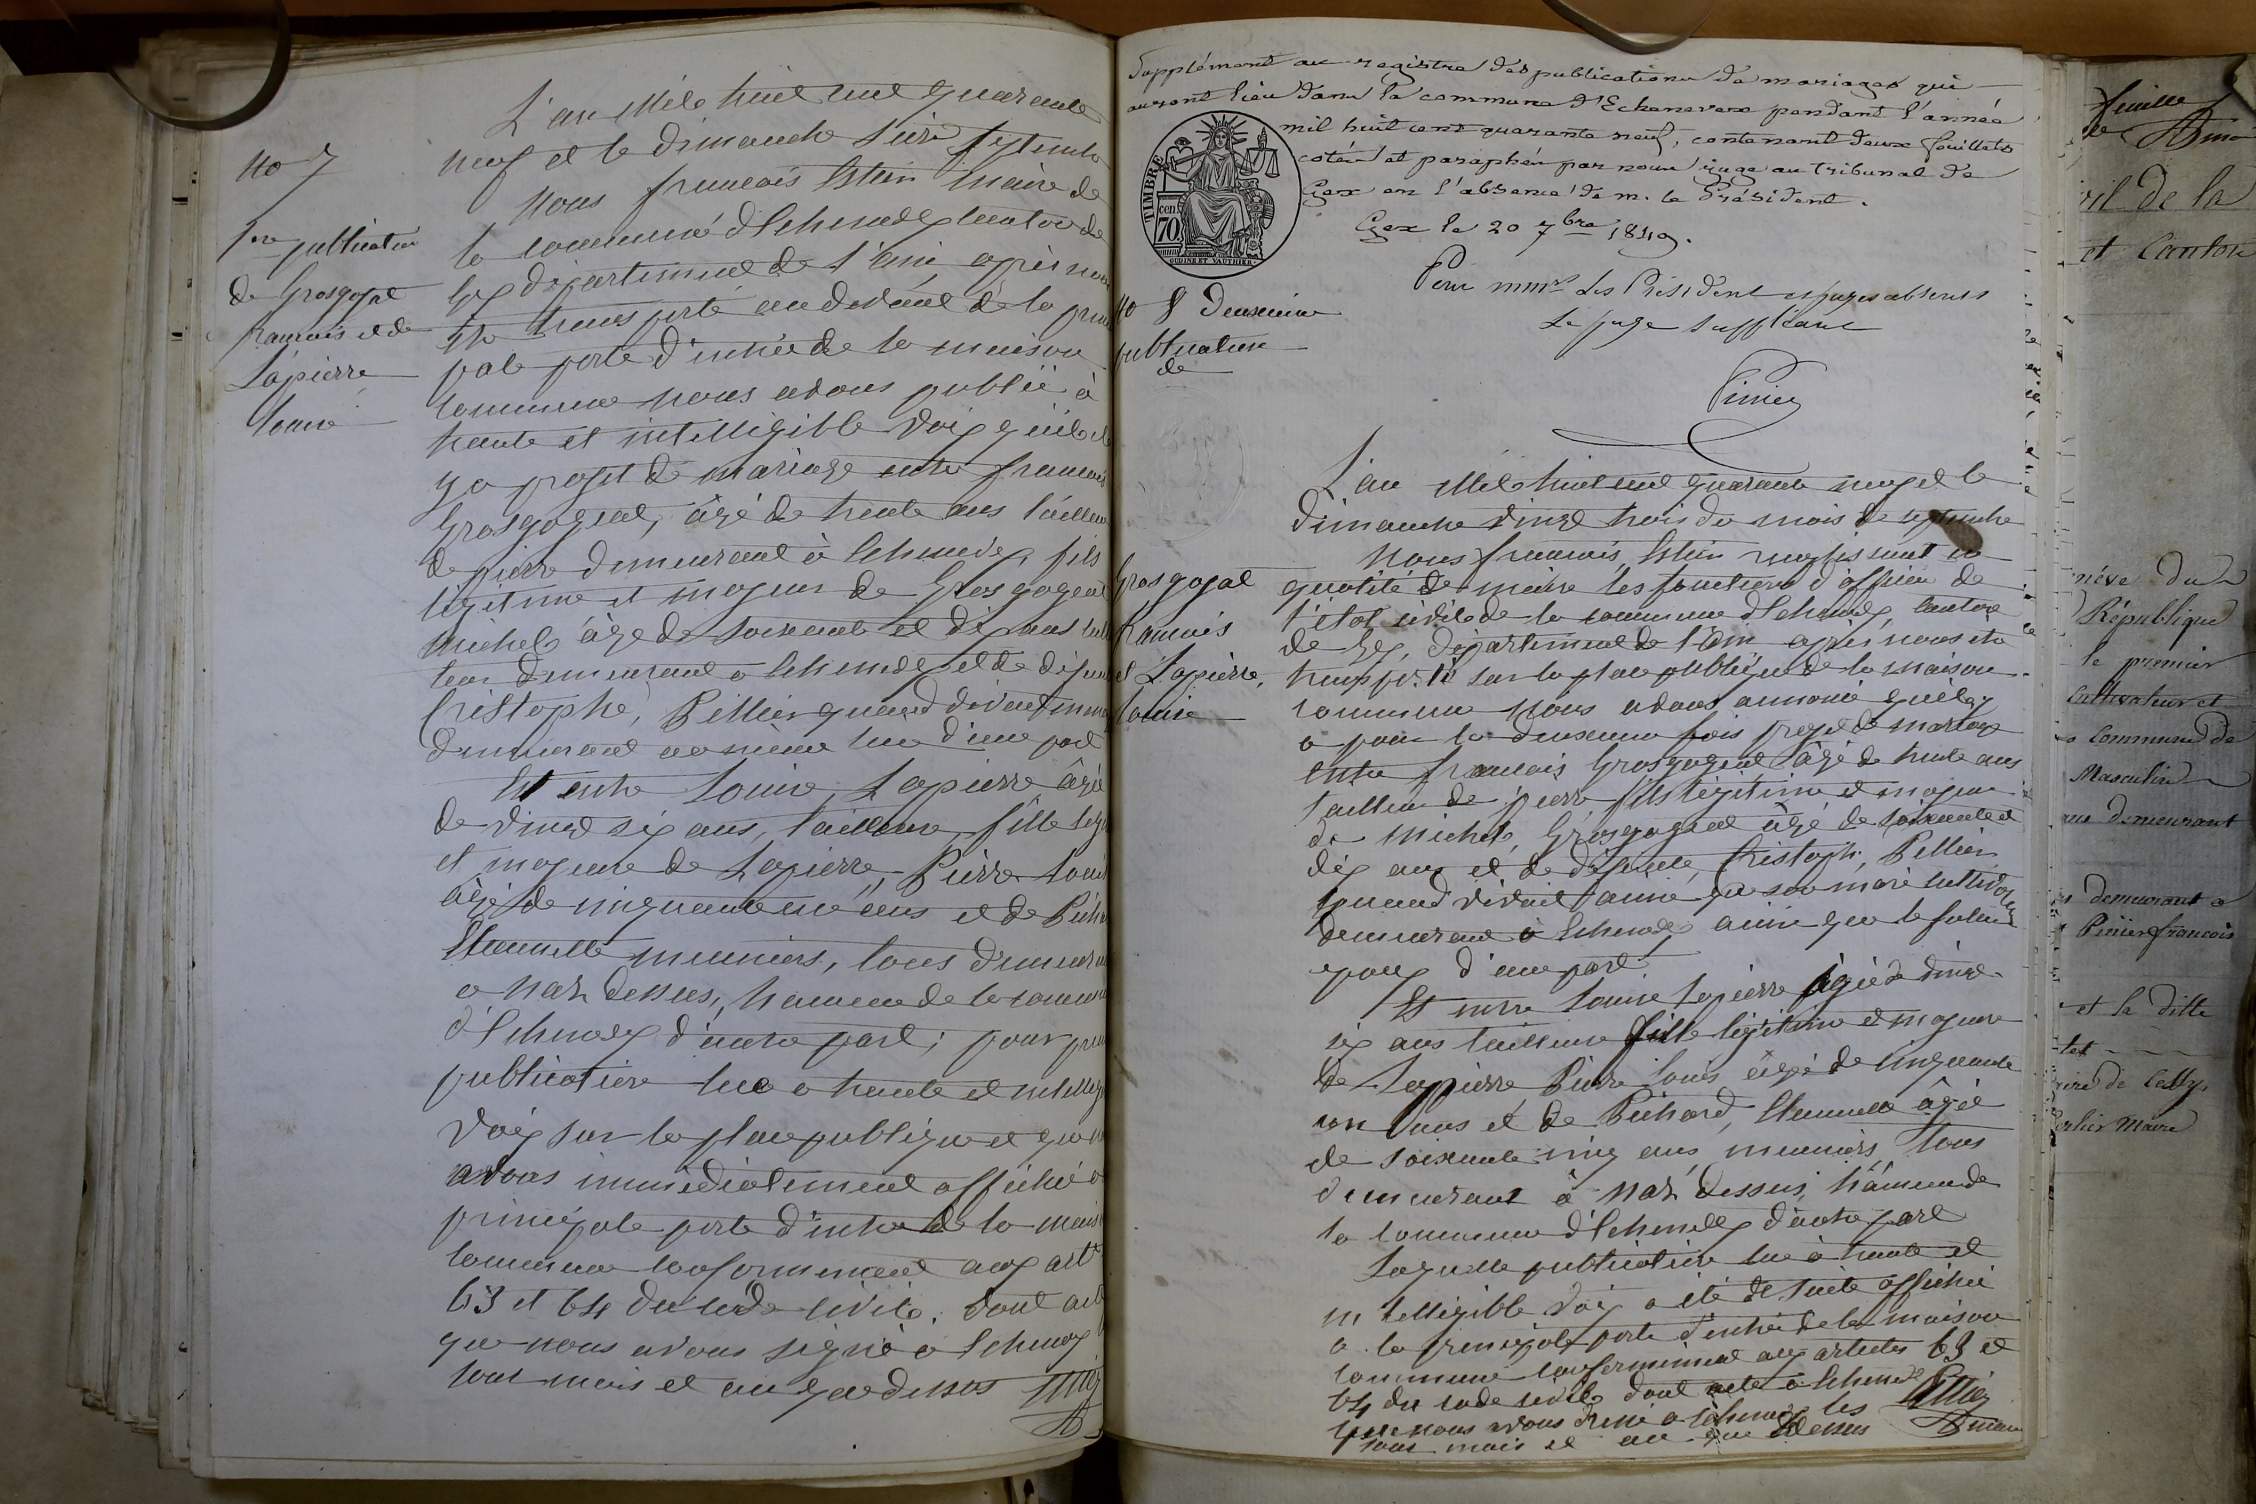 L'an Mil huit cent quarante
neuf et le dimanche seize septembre
Nous françois Estein Maire de
la commune d'Echenevex canton de
Gex département de l'Ain, après nous
être transporté au devant de la princi
pale porte d'entrée de la maison
commune nous avons publié à
haute et intelligible voix qu'il
y a projet de mariage entre françois
Grosgogeat, âgé de trente ans tailleur
de pierre demeurant à Echenevex, fils
légitime et majeur de Grosgogeat
Michel âgé de soixante et dix ans culti
teur demeurant à Echenevex et de défunte
Cristophe, Pellier quand vivait
demeurant au même lieu d'une part
Et entre Louise, Lapierre âgée
de vingt six ans, tailleuse, fille légit
et majeure de Lapierre, Pierre Louis
âgé de cinquante ans et de Pichard
Etiennette meuniers, tous demeurant
à Naz dessus, hameau de la commune
d'Echenevex d'autre part; pour première
publication lue à haute et intelligi
voix sur la place publique et que nous
avons immédiatement affiché à
principale porte d'entrée de la maison
commune conformément aux arts
63 et 64 du code civil. dont acte
que nous avons signé à Echenevex
jour mois et an que dessus
no 7
1re publication
de Grosgogeat
françois et de
Lapierre
Louise
Supplément au registre des publications de mariages qui
auront lieu dans la commune d'Echenevex pendant l'année
mil huit cent quarante neuf, contenant deux feuillets
cotés et paraphés par nous juge au tribunal de
Gex en l'absence de m. le Président.
Gex le 20 7bre 1849.
TIMBRE
cen.
70
Pour mmrs Les Président et juges absents
Le juge suppléant
no 8 Deuxième
publication
de
Grosgogeat
françois
et Lapierre,
Louise
L'an Mil huit cent quarante neuf et le
dimanche vingt trois du mois de septembre
Nous françois, Estein remplissant en
qualité de maire les fonctions d'officier de
l'état civil de la commune d'Echenevex, canton
de Gex, département de l'Ain après nous être
transporté sur la place publique de la maison
commune nous avons annoncé qu'il y
a pour la deuxième fois projet de mariage
entre françois Grosgogeat âgé de trente ans
tailleur de pierre fils légitime et majeur
de Michel, Grosgogeat âgé de soixante et
dix ans et de défunte, Cristophe, Pellier
quand vivait ainsi que son mari cultivateurs
demeurant à Echenevex ainsi que le futur
époux d'une part
Et entre Louise Lapierre âgée de vingt
six ans tailleuse fille légitime et majeure
de Lapierre Pierre Louis âgé de cinquante
ans et de Pichard, Etiennette âgée
de soixante cinq ans meuniers, tous
demeurant à Naz dessus, hameau de
la commune d'Echenevex d'autre part
Laquelle publication lue à haute et
intelligible voix a été de suite affichée
à la principale porte d'entrée de la maison
commune conformément aux articles 63 et
64 du code civil dont acte à Echenevex
que nous avons dressé à Echenevex les
jour mois et an que dessus
feuille
vil de la
et Canton
nève du
République
le premier
Cultivateur et
Commune de
Masculin
demeurant
demeurant à
françois
et la ditte
Maire